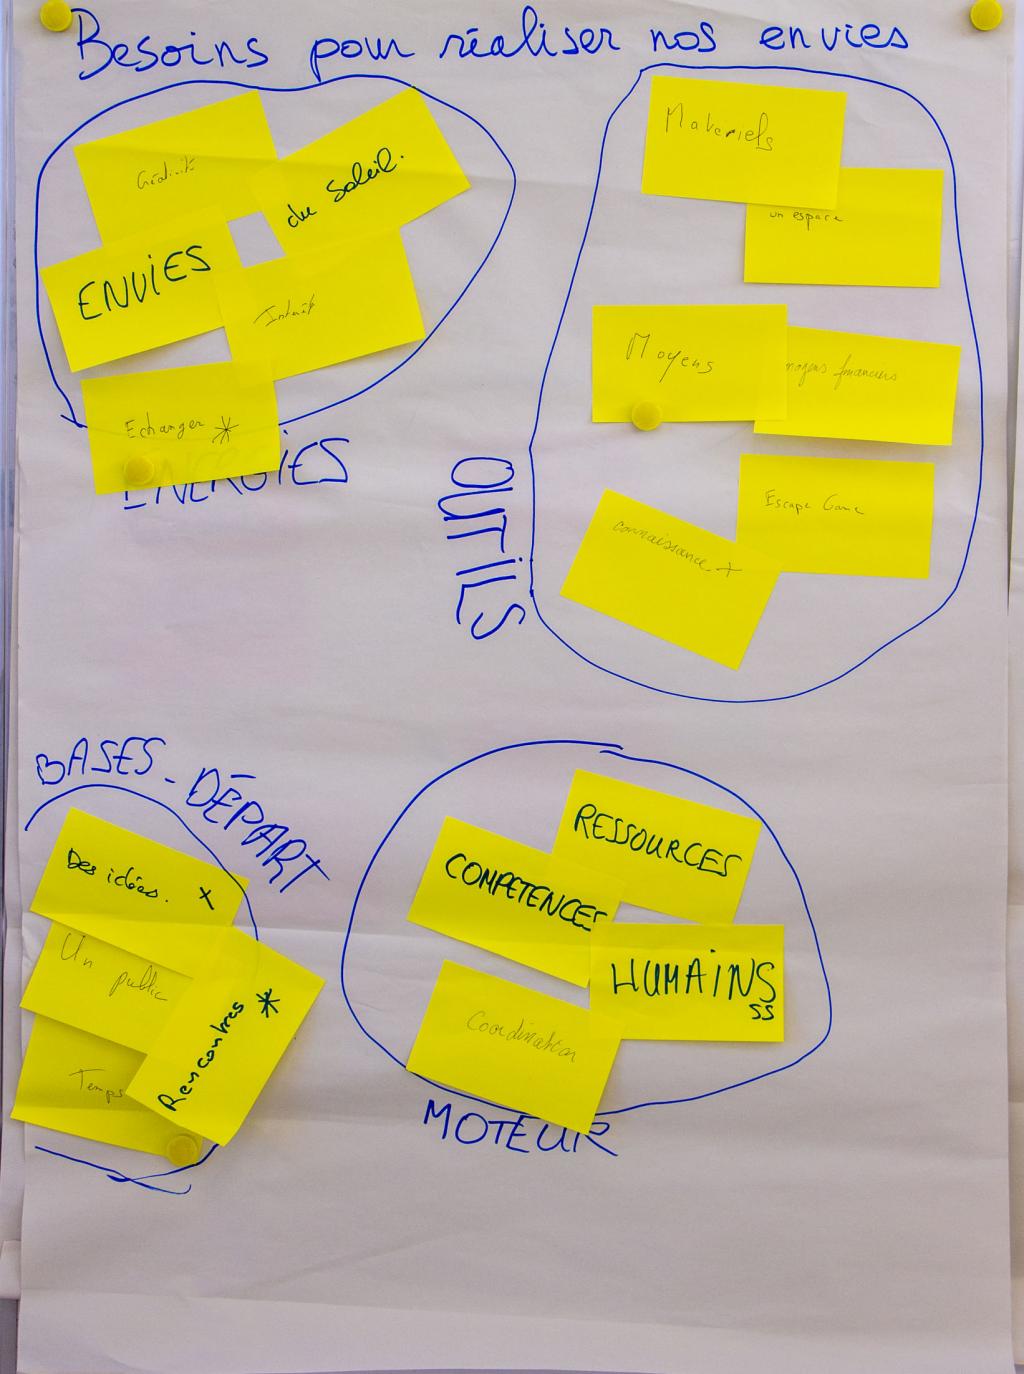 Besoins pour réaliser nos envies
Créativité
du soleil.
ENVIES
Intérêt
Echanger *
ENERGIES
Matériels
un espace
Moyens
moyens financiers
Escape Game
connaissance +
OUTILS
BASES - DÉPART
Des idées. +
Un public
Rencontres *
Temps
RESSOURCES
COMPETENCES
HUMAINS
SS
Coordination
MOTEUR